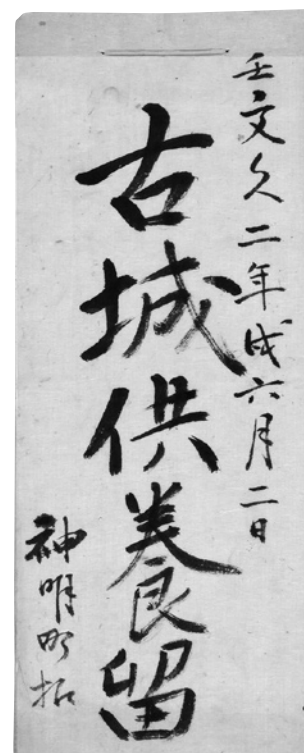 壬文久二年戌六月二日
古城供養留
神明町